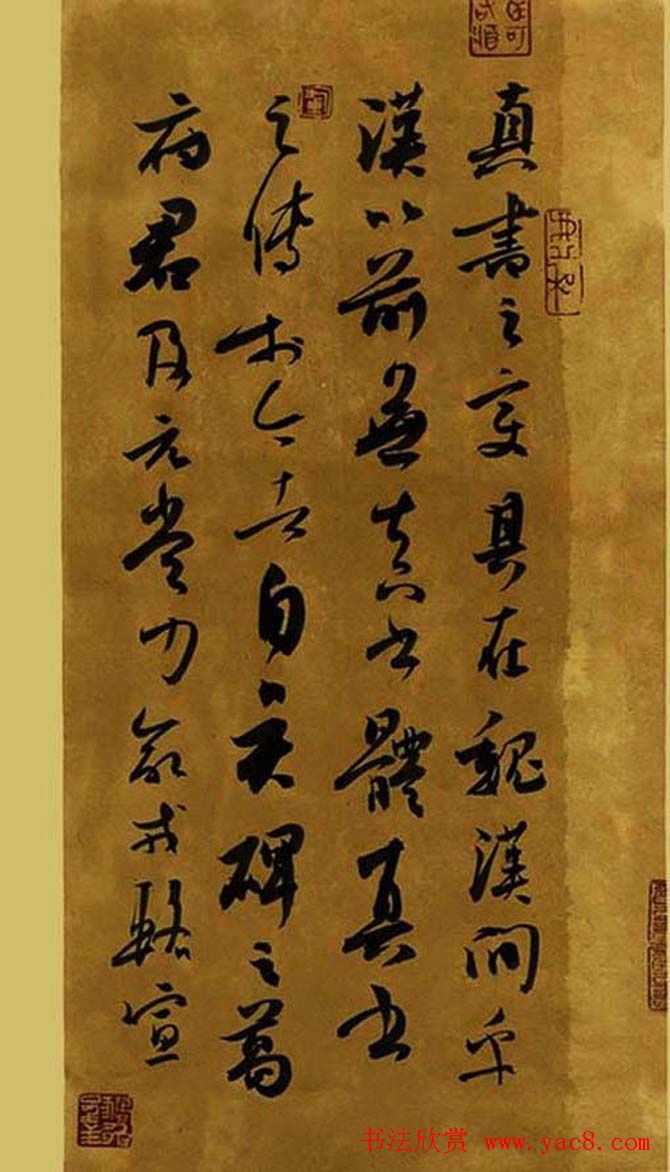 真書之變其在魏漢間乎
漢以前無真書體真書
之傳於今者自吳碑之葛
府君及元常力命戎輅宣
书法欣赏 www.yac8.com